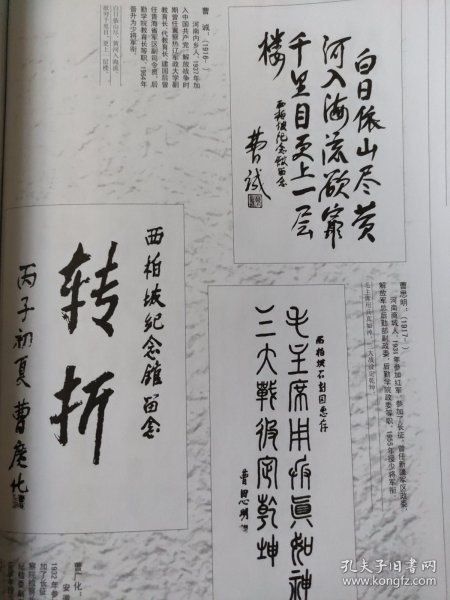 白日依山尽黄
河入海流欲穷
千里目更上一层
楼
西柏坡纪念馆留念
曹诚
曹 诚，(1916-  )
河南内乡人。1937年加
入中国共产党。解放战争时
期曾任冀察热辽军政大学副
教育长、代教育长。建国后曾
任青海省军区副司令员、后
勤学院教育长等职，1964年
晋升为少将军衔。
白日依山尽，黄河入海流；
欲穷千里目，更上一层楼。
西柏坡纪念馆留念
转折
丙子初夏曹广化
曹思明，(1917-  )
河南商城人。1931年参加红军，参加了长征。曾任新疆军区政委、
解放军总后勤部副政委、后勤学院政委等职，1955年授少将军衔。
毛主席用兵真如神，三大战役定乾坤。
西柏坡石刻园惠存
毛主席用兵真如神
三大戰役定乾坤
曹思明
曹广化，
安徽
1932年参
加了长征
孔夫子旧书网
book.kongfz.com